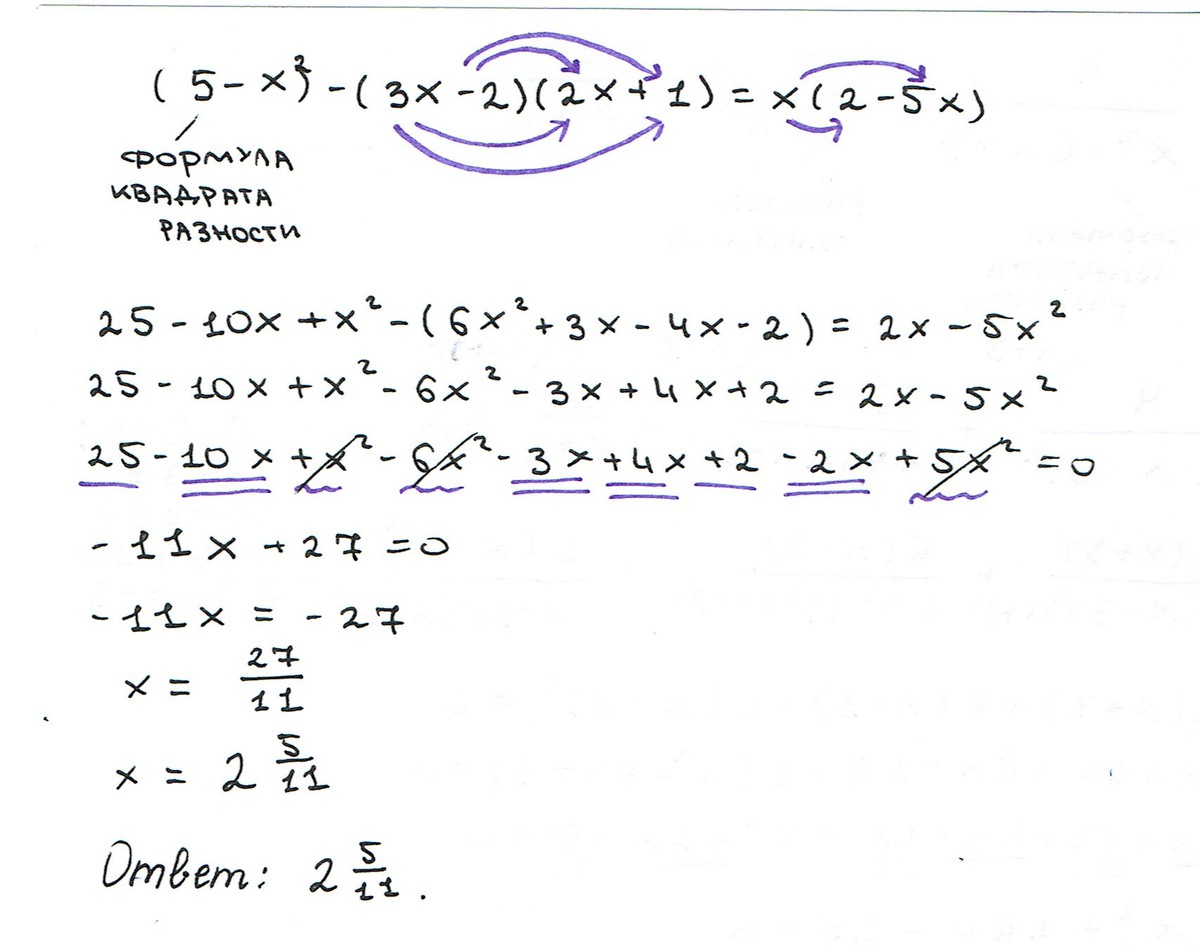 (5-x)² - (3x - 2)(2x + 1) = x(2 - 5x)
ФОРМУЛА
КВАДРАТА
РАЗНОСТИ
25 - 10x + x² - (6x² + 3x - 4x - 2) = 2x - 5x²
25 - 10x + x² - 6x² - 3x + 4x + 2 = 2x - 5x²
25 - 10x + x² - 6x² - 3x + 4x + 2 - 2x + 5x² = 0
- 11x + 27 = 0
- 11x = - 27
x = 27/11
x = 2 5/11
Ответ: 2 5/11.